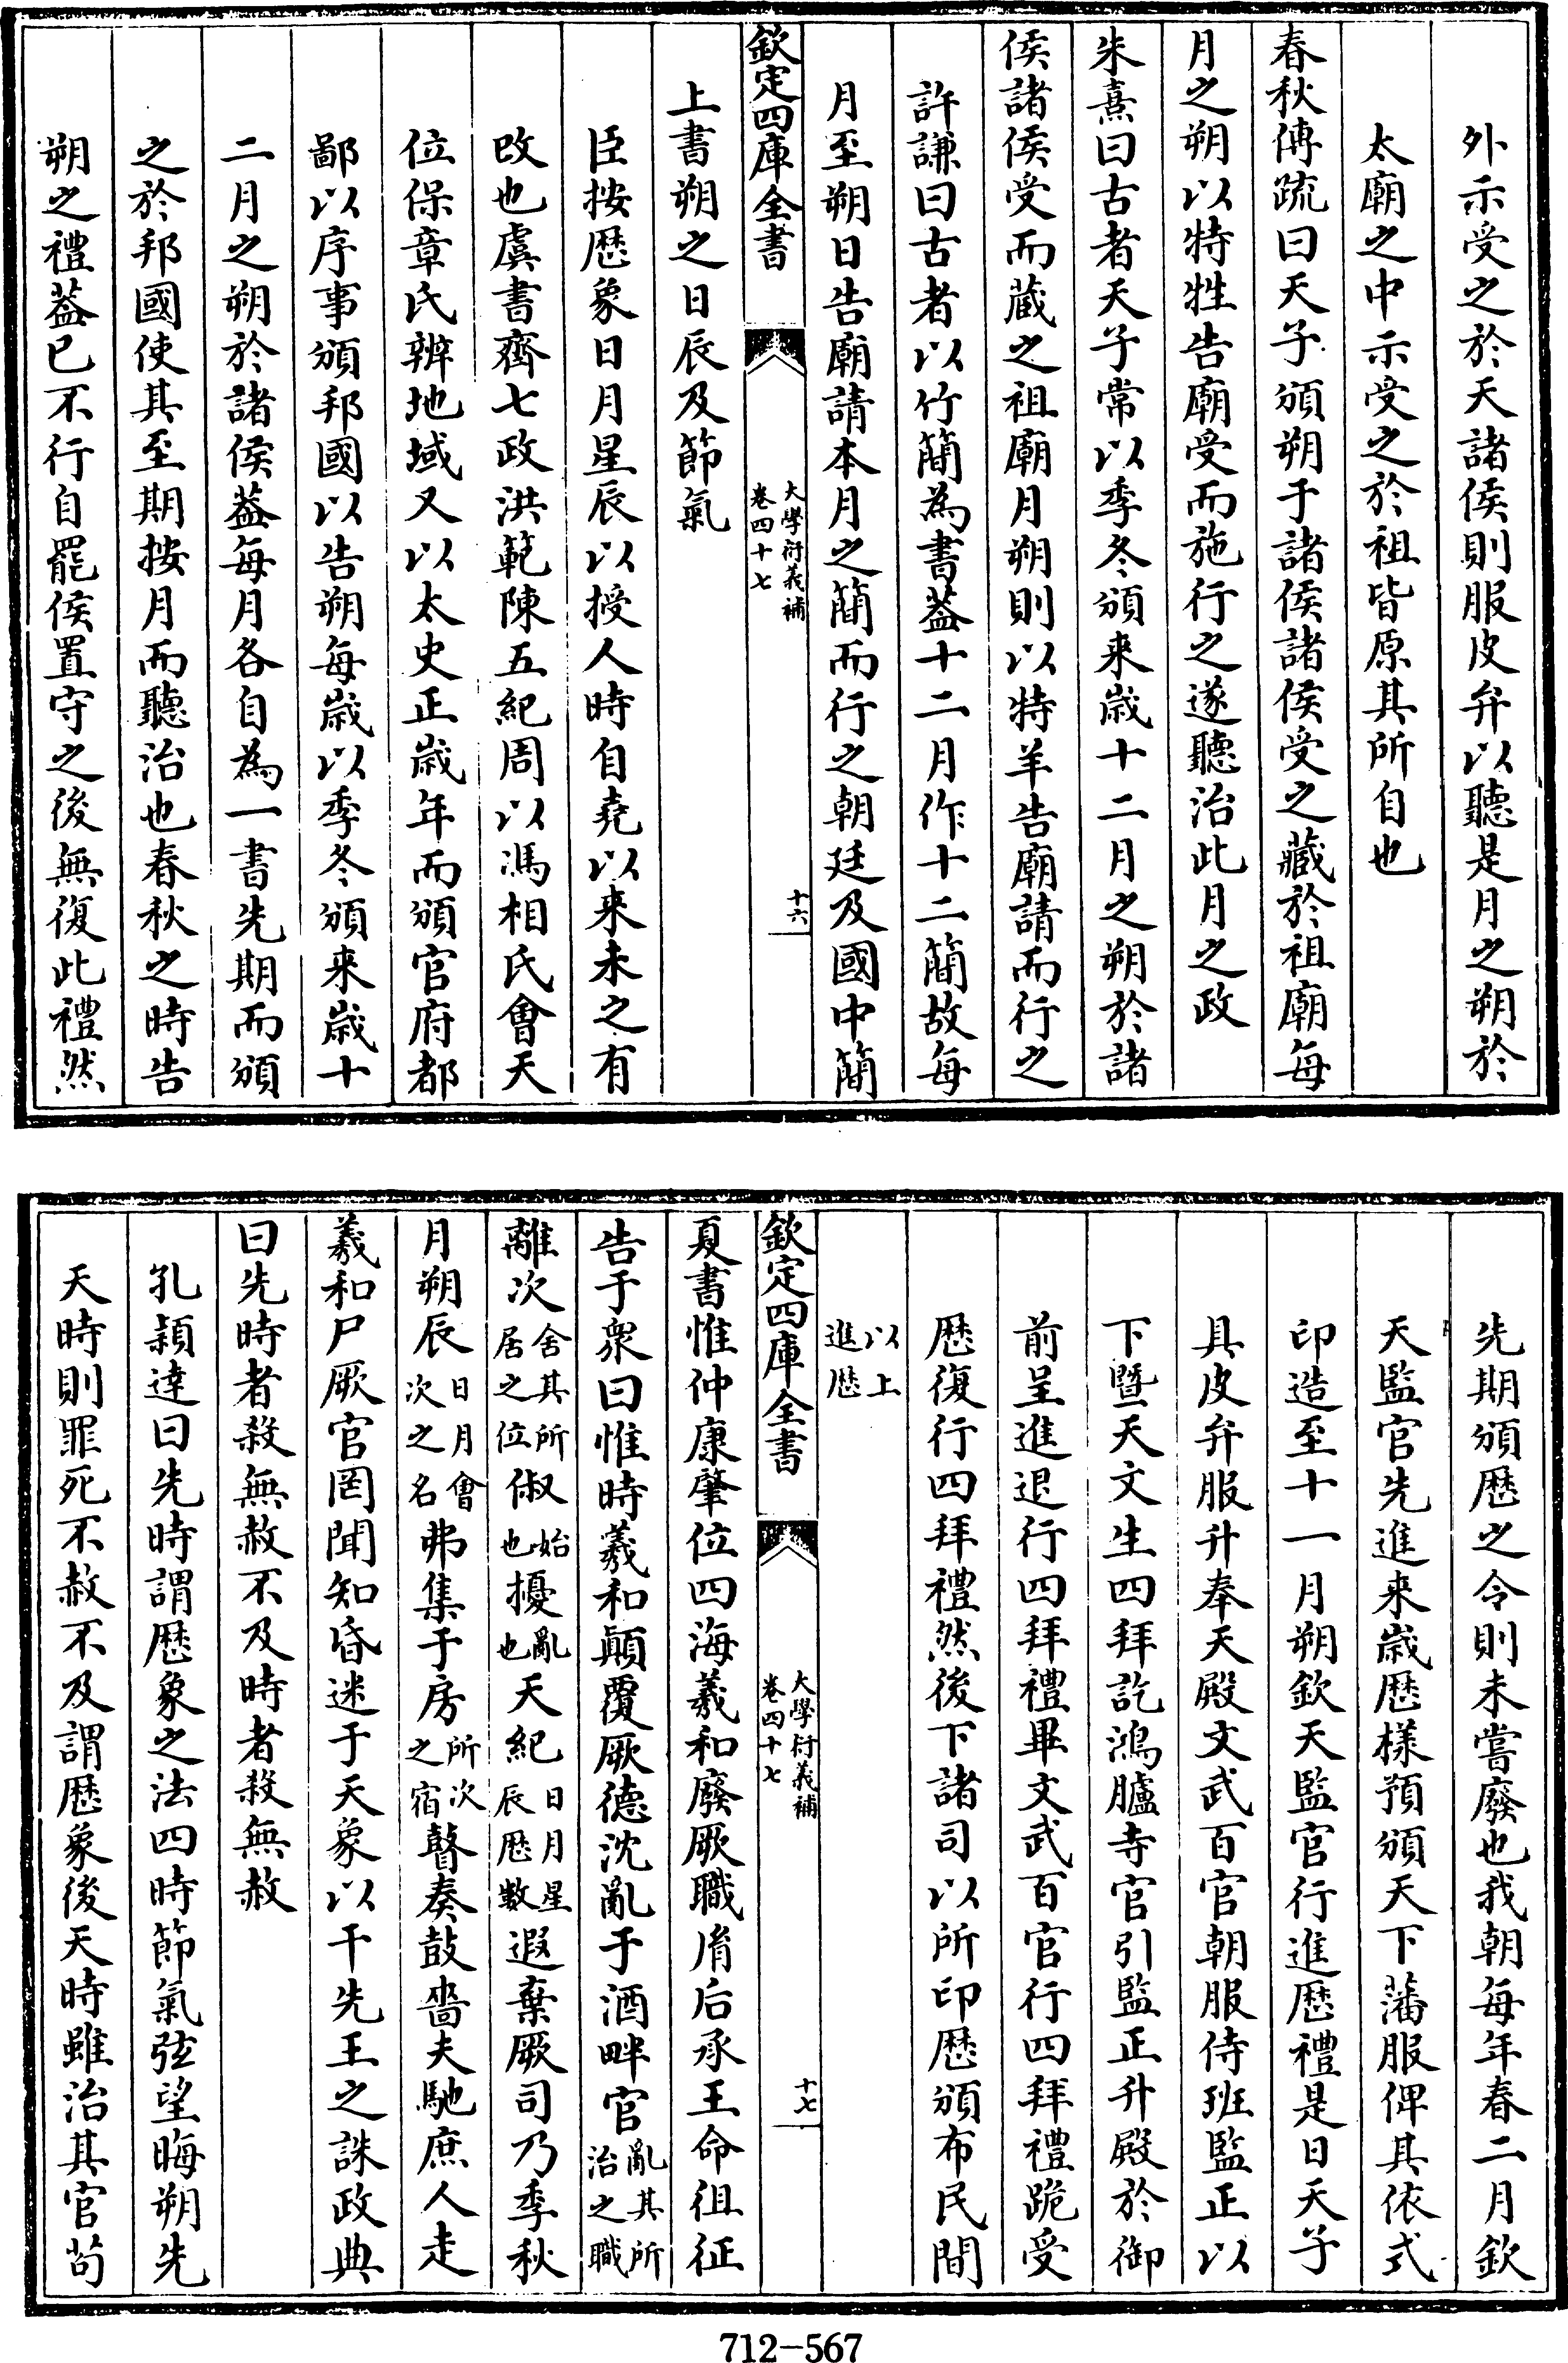 外示受之於天諸侯則服皮弁以聽是月之朔於
太廟之中示受之於祖皆原其所自也
春秋傳疏曰天子頒朔于諸侯諸侯受之藏於祖廟每
月之朔以特牲告廟受而施行之遂聽治此月之政
朱熹曰古者天子常以季冬頒来歲十二月之朔於諸
侯諸侯受而藏之祖廟月朔則以特羊告廟請而行之
許謙曰古者以竹簡為書蓋十二月作十二簡故每
月至朔日告廟請本月之簡而行之朝廷及國中簡
欽定四庫全書
大學衍義補
卷四十七
十六
上書朔之日辰及節氣
臣按歴象日月星辰以授人時自堯以来未之有
改也虞書齊七政洪範陳五紀周以馮相氏會天
位保章氏辨地域又以太史正歲年而頒官府都
鄙以序事頒邦國以告朔每歲以季冬頒来歲十
二月之朔於諸侯蓋每月各自為一書先期而頒
之於邦國使其至期按月而聽治也春秋之時告
朔之禮蓋已不行自罷侯置守之後無復此禮然
先期頒歴之令則未嘗廢也我朝每年春二月欽
天監官先進来歲歴様預頒天下藩服俾其依式
印造至十一月朔欽天監官行進歴禮是日天子
具皮弁服升奉天殿文武百官朝服侍班監正以
下暨天文生四拜訖鴻臚寺官引監正升殿於御
前呈進退行四拜禮畢文武百官行四拜禮跪受
歴復行四拜禮然後下諸司以所印歴頒布民間
以上
進歴
欽定四庫全書
大學衍義補
卷四十七
十七
夏書惟仲康肇位四海羲和廢厥職胤后承王命徂征
告于衆曰惟時羲和顛覆厥德沈亂于酒畔官亂其所治之職
離次舍其所居之位俶始也擾亂也天紀日月星辰歴數遐棄厥司乃季秋
月朔辰日月會次之名弗集于房所次之宿瞽奏鼓嗇夫馳庶人走
羲和尸厥官罔聞知昏迷于天象以干先王之誅政典
曰先時者殺無赦不及時者殺無赦
孔穎達曰先時謂歴象之法四時節氣弦望晦朔先
天時則罪死不赦不及謂歴象後天時雖治其官苟
712-567